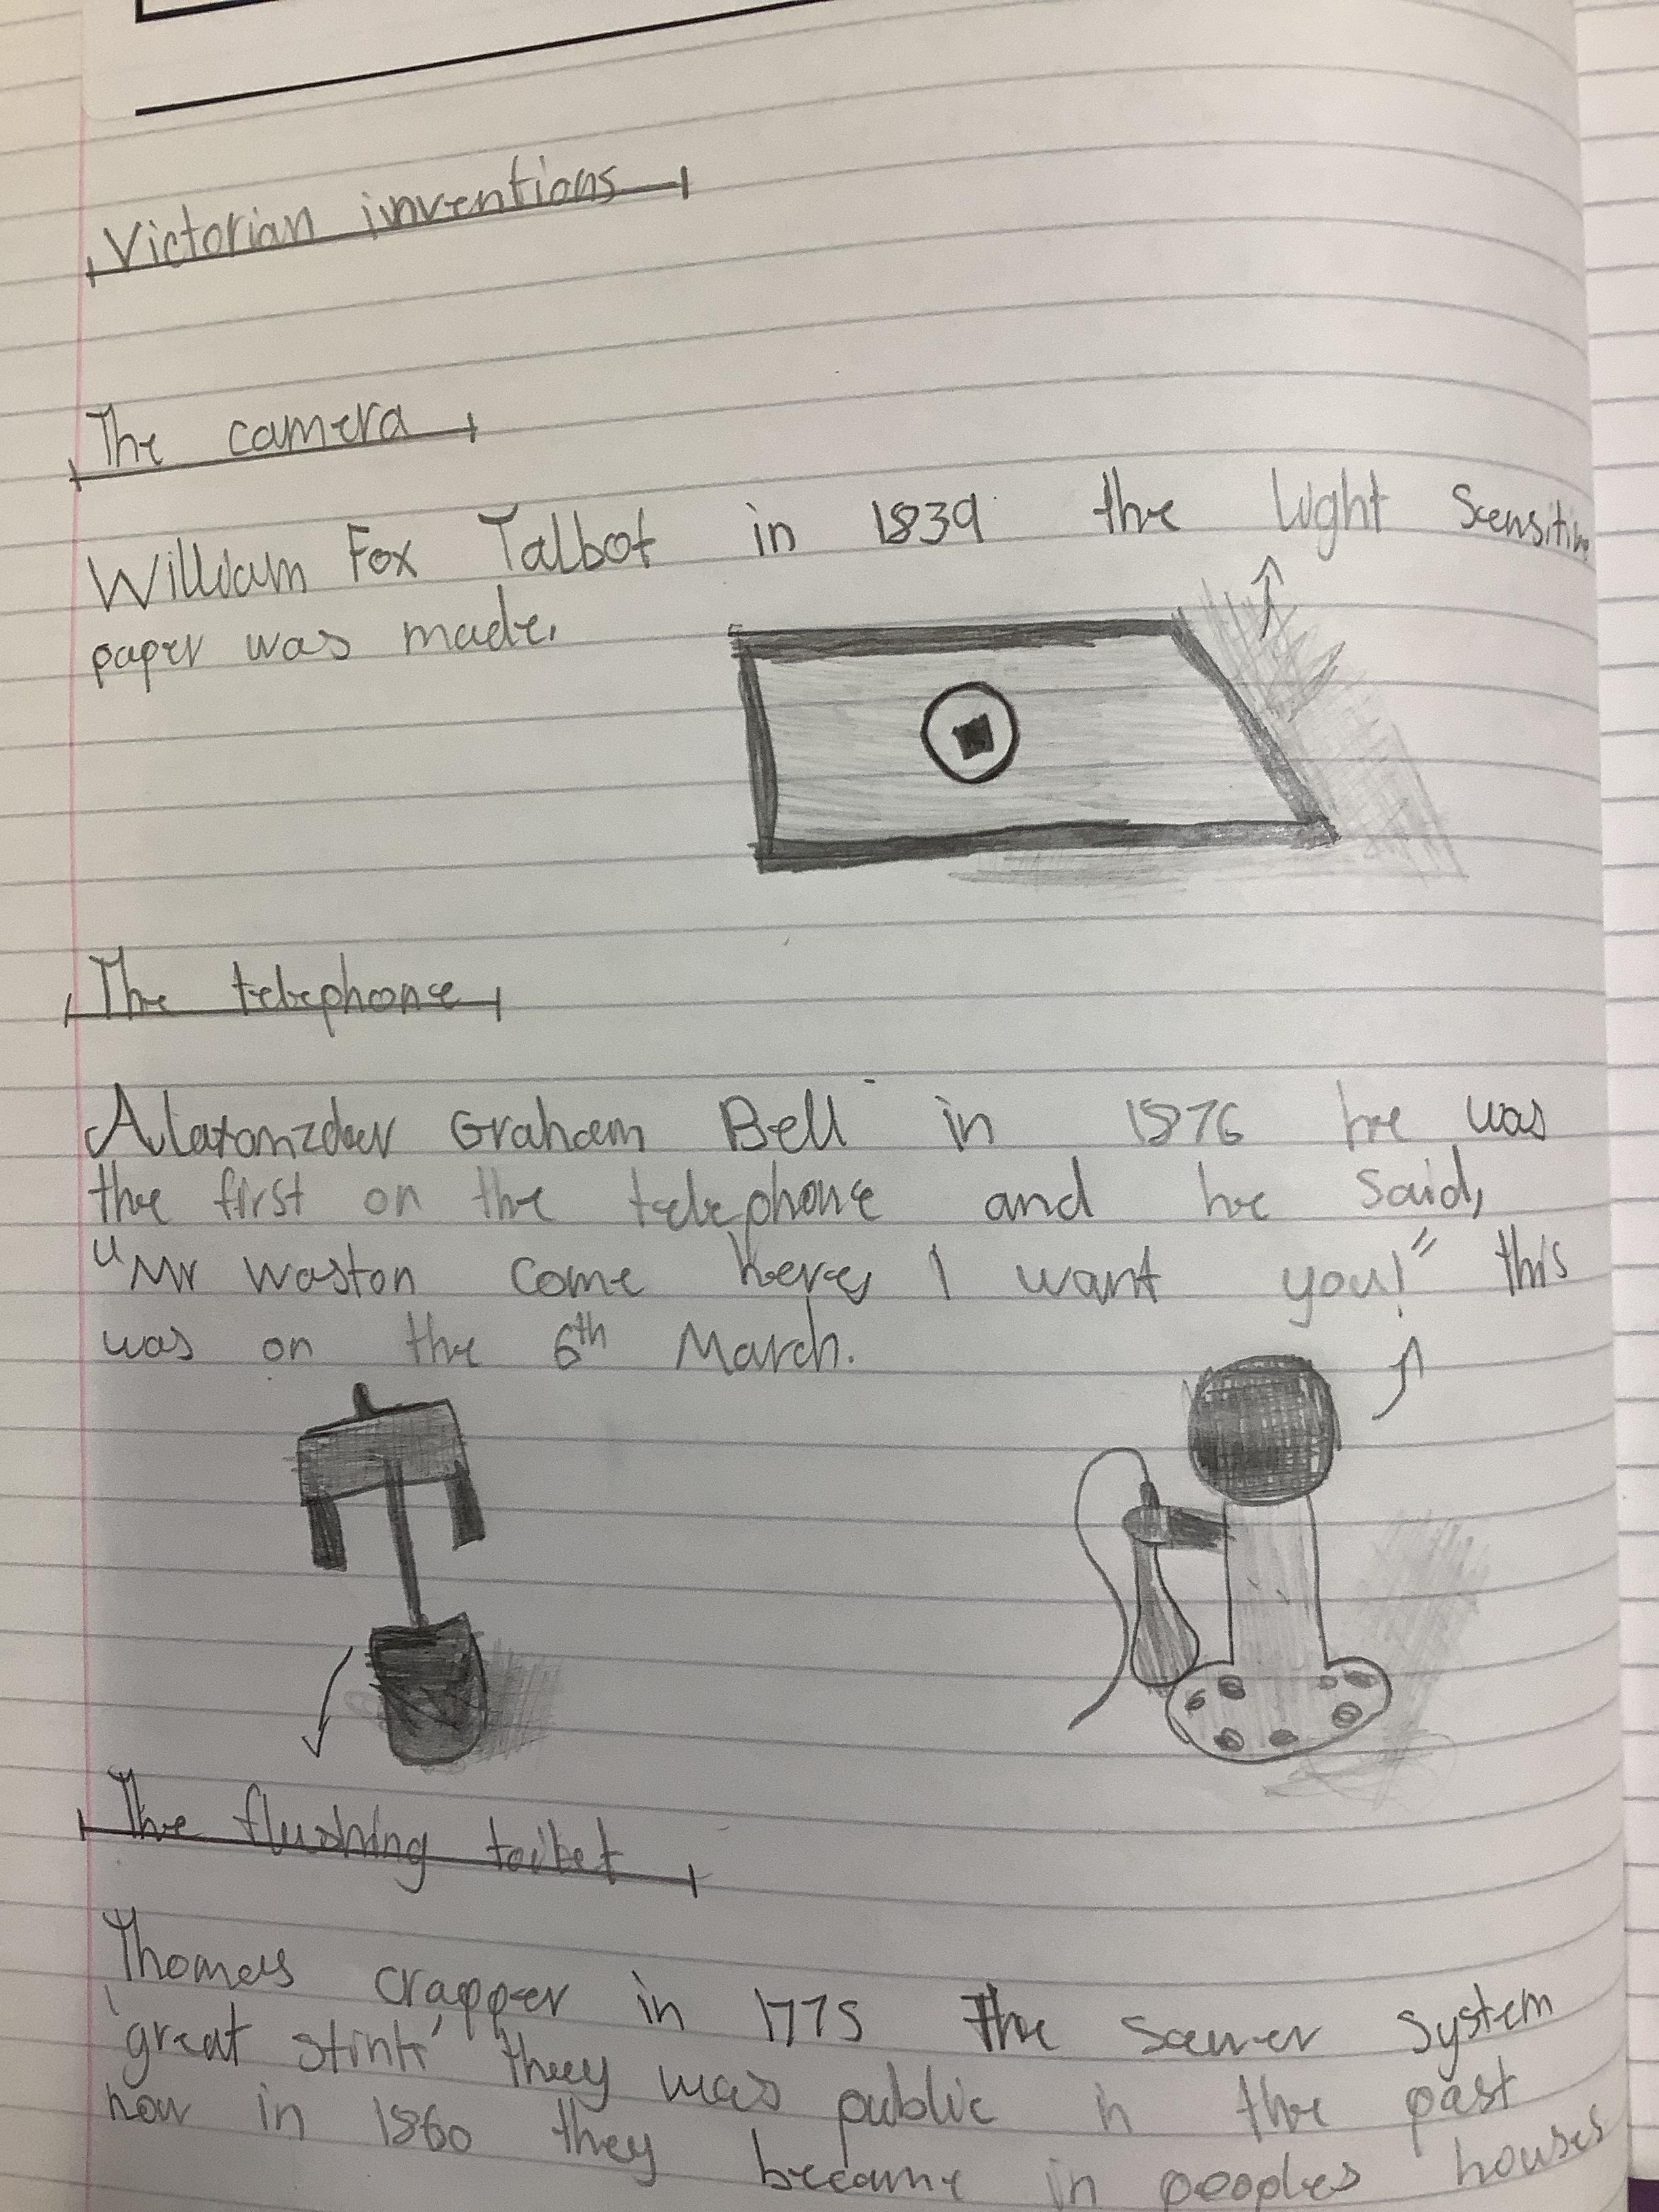 Victorian inventions
The camera
William Fox Talbot in 1839 the light Scensitive
paper was made.
The telephone
Alaxanzder Graham Bell in 1876 he was
the first on the telephone and he said,
"Mr Waston come here, I want you!" this
was on the 6th March.
The flushing toilet
Thomas crapper in 1775 The sewer system
'great stink' they was public in the past
now in 1860 they became in peoples houses